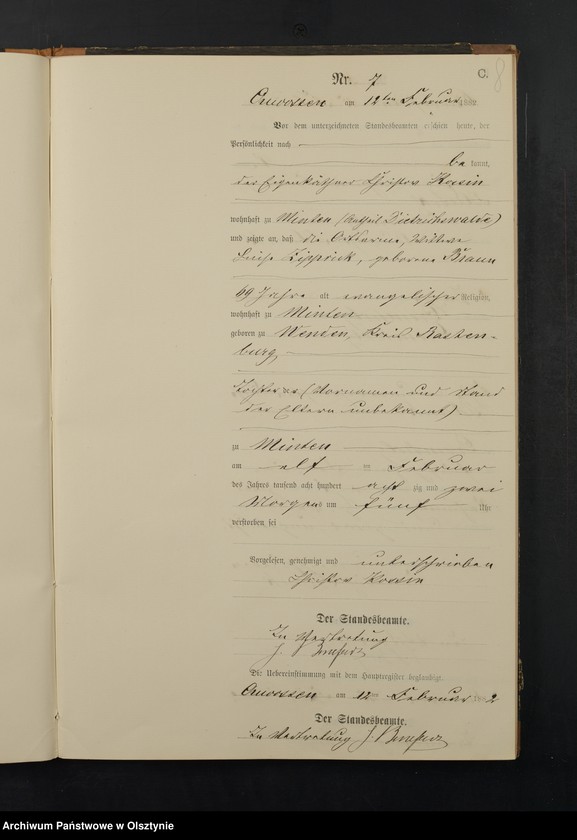 Nr. 7
C.
8
am 12ten Februar 1882
Vor dem unterzeichneten Standesbeamten erschien heute, der
Persönlichkeit nach
be kannt,
der Eigenkäthner Christov
wohnhaft zu Minten (Antheil Dietrichswalde)
und zeigte an, daß die Ortsarme, Wittwe
geborene Braun
69 Jahre alt evangelischer Religion,
wohnhaft zu Minten
geboren zu Wenden, Kreis Rasten-
burg,
(Vornamen und Stand
der Eltern unbekannt)
zu Minten
am elf ten Februar
des Jahres tausend acht hundert acht zig und zwei
Morgens um fünf Uhr
verstorben sei
Vorgelesen, genehmigt und unterschrieben
Christov
Der Standesbeamte.
In Vertretung
Die Uebereinstimmung mit dem Hauptregister beglaubigt.
am 12ten Februar 1882
Der Standesbeamte.
In Vertretung J.
Archiwum Państwowe w Olsztynie